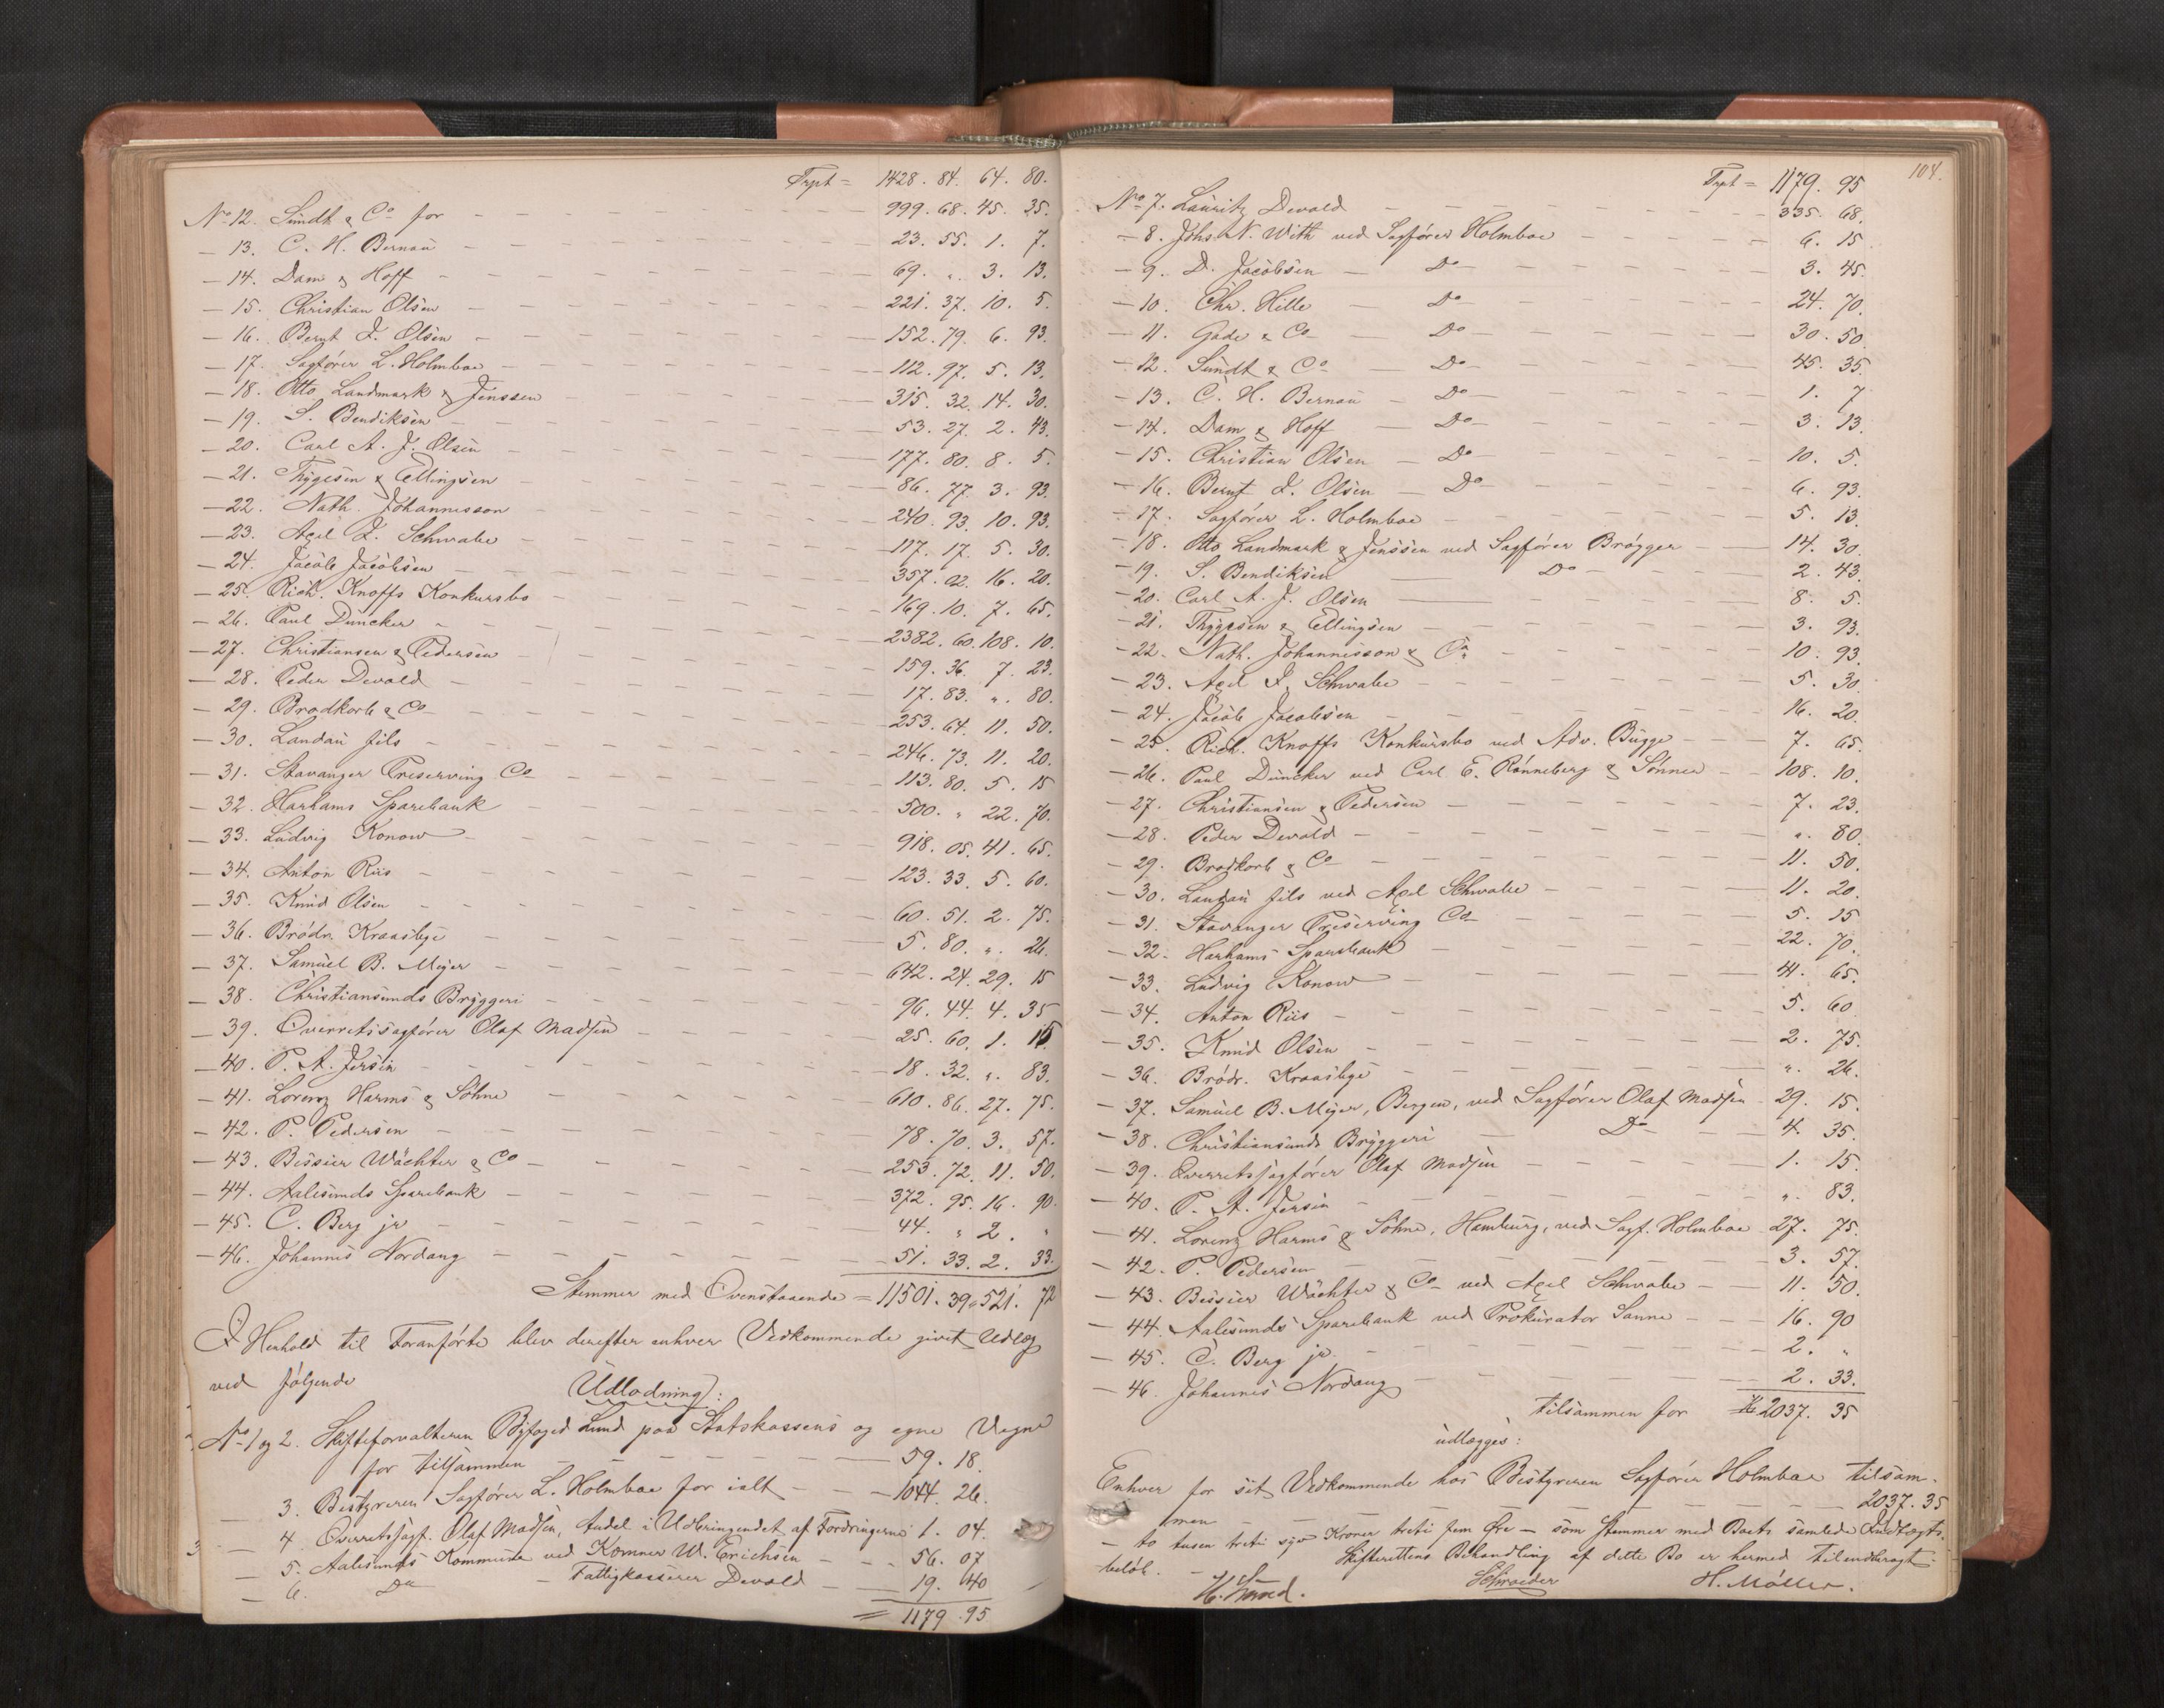 Trpt = 1428. 84. 64. 80.
No 12. Sundt & Co for 999. 68. 45. 35.
- 13. C. H. Bernau 23. 55. 1. 7.
- 14. Dam & Hoff 69. " 3. 13.
- 15. Christian Olsen 221. 37. 10. 5.
- 16. Bernt I. Olsen 152. 79. 6. 93.
- 17. Sagfører L. Holmboe 112. 97. 5. 13.
- 18. Otto Landmark & Jenssen 315. 32. 14. 30.
- 19. S. Bendiksen 53. 27. 2. 43.
- 20. Carl A. J. Olsen 177. 80. 8. 5.
- 21. Thygesen & Ellingsen 86. 77. 3. 93.
- 22. Nath. Johannisson 240. 93. 10. 93.
- 23. Axel I. Schwabe 117. 17. 5. 30.
- 24. Jacob Jacobsen 357. 02. 16. 20.
- 25. Rich. Knoffs Konkursbo 169. 10. 7. 65.
- 26. Paul Duncker 2382. 60. 108. 10.
- 27. Christiansen & Pedersen 159. 36. 7. 23.
- 28. Peder Devold 17. 83. " 80.
- 29. Brodkorb & Co 253. 64. 11. 50.
- 30. Landau fils 246. 73. 11. 20.
- 31. Stavanger Preserving Co 113. 80. 5. 15
- 32. Harhams Sparebank 500. " 22. 70.
- 33. Ludvig Konow 918. 05. 41. 65.
- 34. Anton Riis 123. 33. 5. 60.
- 35. Knud Olsen 60. 51. 2. 75.
- 36. Brødr. Kraasbye 5. 80. " 26.
- 37. Samuel B. Mejer 642. 24. 29. 15
- 38. Christiansunds Bryggeri 96. 44. 4. 35
- 39. Overretssagfører Olaf Madsen 25. 60. 1. 15
- 40. P. A. Jersin 18. 32. " 83.
- 41. Lorenz Harms & Söhne 610. 86. 27. 75.
- 42. P. Pedersen 78. 70. 3. 57.
- 43. Bessier Wächter & Co 253. 72. 11. 50.
- 44. Aalesunds Sparebank 372. 95. 16. 90.
- 45. C. Berg jr 44. " 2. "
- 46. Johannes Nordang 51. 33. 2. 33.
Stemmer med Ovenstaaende = 11501. 39 = 521. 72
I Henhold til Foranførte blev derefter enhver Vedkommende givet Udlæg
ved følgende
Udlodning:
No 1 og 2. Skifteforvalteren Byfoged Lund paa Statskassens og egne Vegne
for tilsammen 59. 18.
- 3. Bestyreren Sagfører L. Holmboe for ialt 1044. 26.
- 4. Overretssagf. Olaf Madsen, Andel i Udbringendet af Fordringerne 1. 04.
- 5. Aalesunds Kommune ved Kæmner W. Erichsen 56. 07
- 6. Do - Fattigkasserer Devold 19. 40
= 1179. 95
104.
Trpt = 1179. 95
No 7. Lauritz Devold 335. 68.
- 8. Johs. N. With ved Sagfører Holmboe 6. 15
- 9. D. Jacobsen Do 3. 45.
- 10. Chr. Hille Do 24. 70.
- 11. Gade & Co Do 30. 50
- 12. Sundt & Co Do 45. 35.
- 13. C. H. Bernau Do 1. 7
- 14. Dam & Hoff Do 3. 13.
- 15. Christian Olsen Do 10. 5.
- 16. Bernt I. Olsen Do 6. 93.
- 17. Sagfører L. Holmboe 5. 13.
- 18. Otto Landmark & Jenssen ved Sagfører Brøgger 14. 30.
- 19. S. Bendiksen Do 2. 43.
- 20. Carl A. J. Olsen 8. 5.
- 21. Thygesen & Ellingsen 3. 93.
- 22. Nath. Johannisson & Co 10. 93.
- 23. Axel I. Schwabe 5. 30.
- 24. Jacob Jacobsen 16. 20.
- 25. Rich. Knoffs Konkursbo ved Adv. Bugge 7. 65.
- 26. Paul Duncker ved Carl E. Rønneberg & Sønner 108. 10.
- 27. Christiansen & Pedersen 7. 23.
- 28. Peder Devold " 80.
- 29. Brodkorb & Co 11. 50.
- 30. Landau fils ved Axel Schwabe 11. 20.
- 31. Stavanger Preserving Co 5. 15
- 32. Harhams Sparebank 22. 70.
- 33. Ludvig Konow 41. 65.
- 34. Anton Riis 5. 60
- 35. Knud Olsen 2. 75.
- 36. Brødr. Kraasbye " 26.
- 37. Samuel B. Mejer, Bergen, ved Sagfører Olaf Madsen 29. 15.
- 38. Christiansunds Bryggeri Do 4. 35.
- 39. Overretssagfører Olaf Madsen 1. 15.
- 40. P. A. Jersin " 83.
- 41. Lorenz Harms & Söhne, Hamburg, ved Sagf. Holmboe 27. 75.
- 42. P. Pedersen 3. 57.
- 43. Bessier Wächter & Co ved Axel Schwabe 11. 50.
- 44. Aalesunds Sparebank ved Prokurator Sanne 16. 90
- 45. C. Berg jr 2. "
- 46. Johannes Nordang 2. 33.
tilsammen for Kr. 2037. 35
udlægges:
Enhver for sit Vedkommende hos Bestyreren Sagfører Holmboe tilsam-
men 2037. 35
- to tusen treti syv Kroner treti fem Øre - som stemmer med Boets samlede Indtægts-
beløb. - Skifterettens Behandling af dette Bo er hermed tilendebragt.
H. Lund. Schrøder H. Møller.